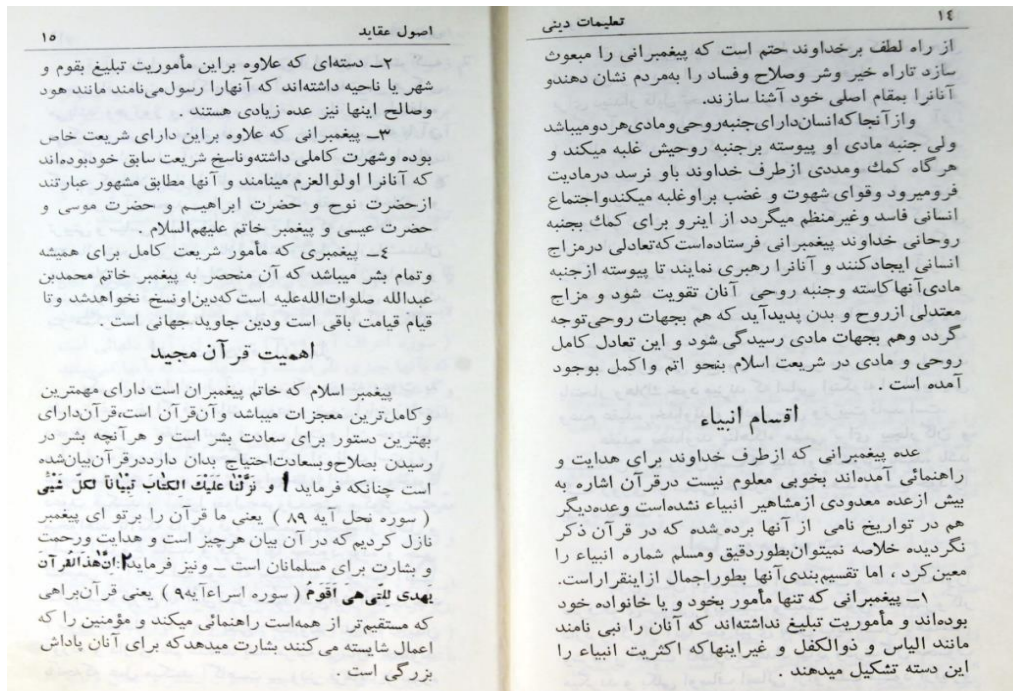 ١٤
تعلیمات دینی
از راه لطف برخداوند حتم است که پیغمبرانی را مبعوث
سازد تاراه خیر وشر وصلاح وفساد را بمردم نشان دهندو
آنانرا بمقام اصلی خود آشنا سازند.
واز آنجا که انسان دارای جنبه روحی ومادی هر دو میباشد
ولی جنبه مادی او پیوسته برجنبه روحیش غلبه میکند و
هرگاه کمك ومددی ازطرف خداوند باو نرسد درمادیت
فرومیرود وقوای شهوت و غضب براوغلبه میکندواجتماع
انسانی فاسد وغیرمنظم میگردد از اینرو برای کمك بجنبه
روحانی خداوند پیغمبرانی فرستاده است که تعادلی درمزاج
انسانی ایجادکنند و آنانرا رهبری نمایند تا پیوسته ازجنبه
مادی آنها کاسته وجنبه روحی آنان تقویت شود و مزاج
معتدلی ازروح و بدن پدیدآید که هم بجهات روحی توجه
گردد وهم بجهات مادی رسیدگی شود و این تعادل کامل
روحی و مادی در شریعت اسلام بنحو اتم واکمل بوجود
آمده است .
اقسام انبیاء
عده پیغمبرانی که ازطرف خداوند برای هدایت و
راهنمائی آمده‌اند بخوبی معلوم نیست درقرآن اشاره به
بیش ازعده معدودی ازمشاهیر انبیاء نشده است وعده‌دیگر
هم در تواریخ نامی از آنها برده شده که در قرآن ذکر
نگردیده خلاصه نمیتوان بطوردقیق ومسلم شماره انبیاء را
معین کرد ، اما تقسیم‌بندی آنها بطوراجمال ازاینقراراست.
١ـ پیغمبرانی که تنها مأمور بخود و یا خانواده خود
بوده‌اند و مأموریت تبلیغ نداشته‌اند که آنان را نبی نامند
مانند الیاس و ذوالکفل و غیراینها که اکثریت انبیاء را
این دسته تشکیل میدهند .
اصول عقاید
١٥
٢ـ دسته‌ای که علاوه براین مأموریت تبلیغ بقوم و
شهر یا ناحیه داشته‌اند که آنهارا رسول می‌نامند مانند هود
وصالح اینها نیز عده زیادی هستند .
٣ـ پیغمبرانی که علاوه براین دارای شریعت خاص
بوده وشهرت کاملی داشته‌وناسخ شریعت سابق خودبوده‌اند
که آنانرا اولوالعزم مینامند و آنها مطابق مشهور عبارتند
ازحضرت نوح و حضرت ابراهیم و حضرت موسی و
حضرت عیسی و پیغمبر خاتم علیهم‌السلام .
٤ـ پیغمبری که مأمور شریعت کامل برای همیشه
وتمام بشر میباشد که آن منحصر به پیغمبر خاتم محمدبن
عبدالله صلوات‌الله‌علیه است که دین اونسخ نخواهدشد و تا
قیام قیامت باقی است ودین جاوید جهانی است .
اهمیت قرآن مجید
پیغمبر اسلام که خاتم پیغمبران است دارای مهمترین
و کامل‌ترین معجزات میباشد وآن‌قرآن است،قرآن‌دارای
بهترین دستور برای سعادت بشر است و هرآنچه بشر در
رسیدن بصلاح‌وسعادت‌احتیاج بدان دارددرقرآن‌بیان‌شده
است چنانکه فرماید ١ و نَزَّلْنا عَلَیكَ الکِتابَ تِبْیاناً لِکُلِّ شَیْئٍ
( سوره نحل آیه ٨٩ ) یعنی ما قرآن را برتو ای پیغمبر
نازل کردیم که در آن بیان هرچیز است و هدایت ورحمت
و بشارت برای مسلمانان است ـ ونیز فرماید ٢ : اِنَّ هذَا القُرآنَ
یَهْدی لِلَّتی هِیَ اَقْوَمُ ( سوره اسراءآیه ٩ ) یعنی قرآن‌براهی
که مستقیم‌تر از همه‌است راهنمائی میکند و مؤمنین را که
اعمال شایسته می‌کنند بشارت میدهدکه برای آنان پاداش
بزرگی است .